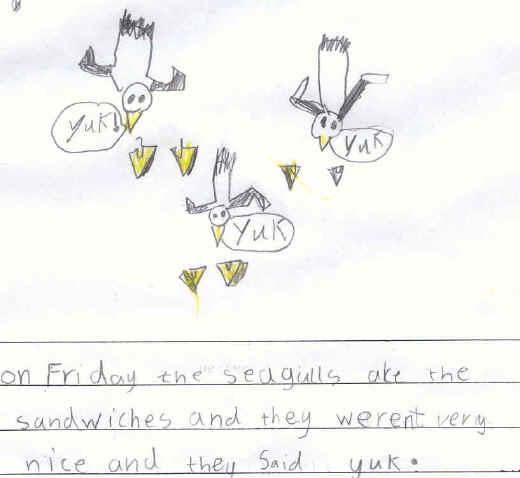 yuk!
yuk
yuk
on Friday the seagulls ate the
sandwiches and they werent very
nice and they said yuk.